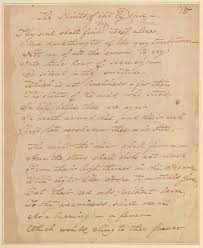 The Spirits of the Dead
Thy soul shall find itself alone
dark thoughts of the gray tomb-stone
Not one of all the crowd to pry
Into thine hour of secrecy
Be silent in that solitude
Which is not loneliness — for then
The spirits of the dead who stood
In life before thee are again
In death around thee and their will
Shall then overshadow thee be still
The night shall frown
And the stars shall look not down
From their high thrones in the Heaven
With light like Hope to mortals given
But their red orbs without beam
To thy weariness shall seem
As a burning a fever
Which would cling to thee forever